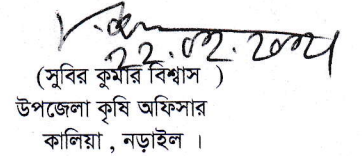 22.02.2021
(সুবির কুমার বিশ্বাস )
উপজেলা কৃষি অফিসার
কালিয়া , নড়াইল ।